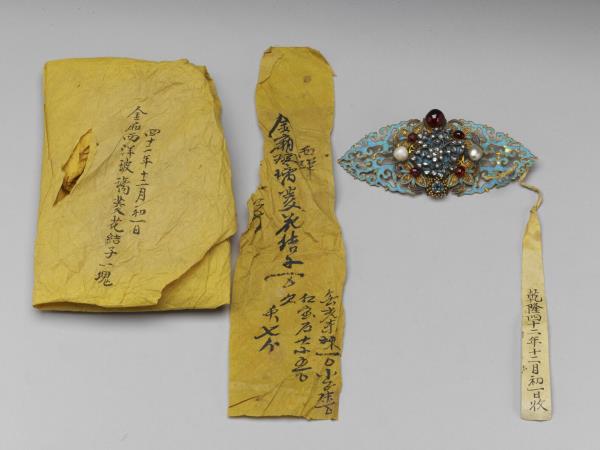 四十二年十二月初一日
金廂西洋玻璃菱花結子一塊
西洋
金廂玻璃菱花結子一个
紅宝石大小五个
乾隆四十二年十二月初一日收